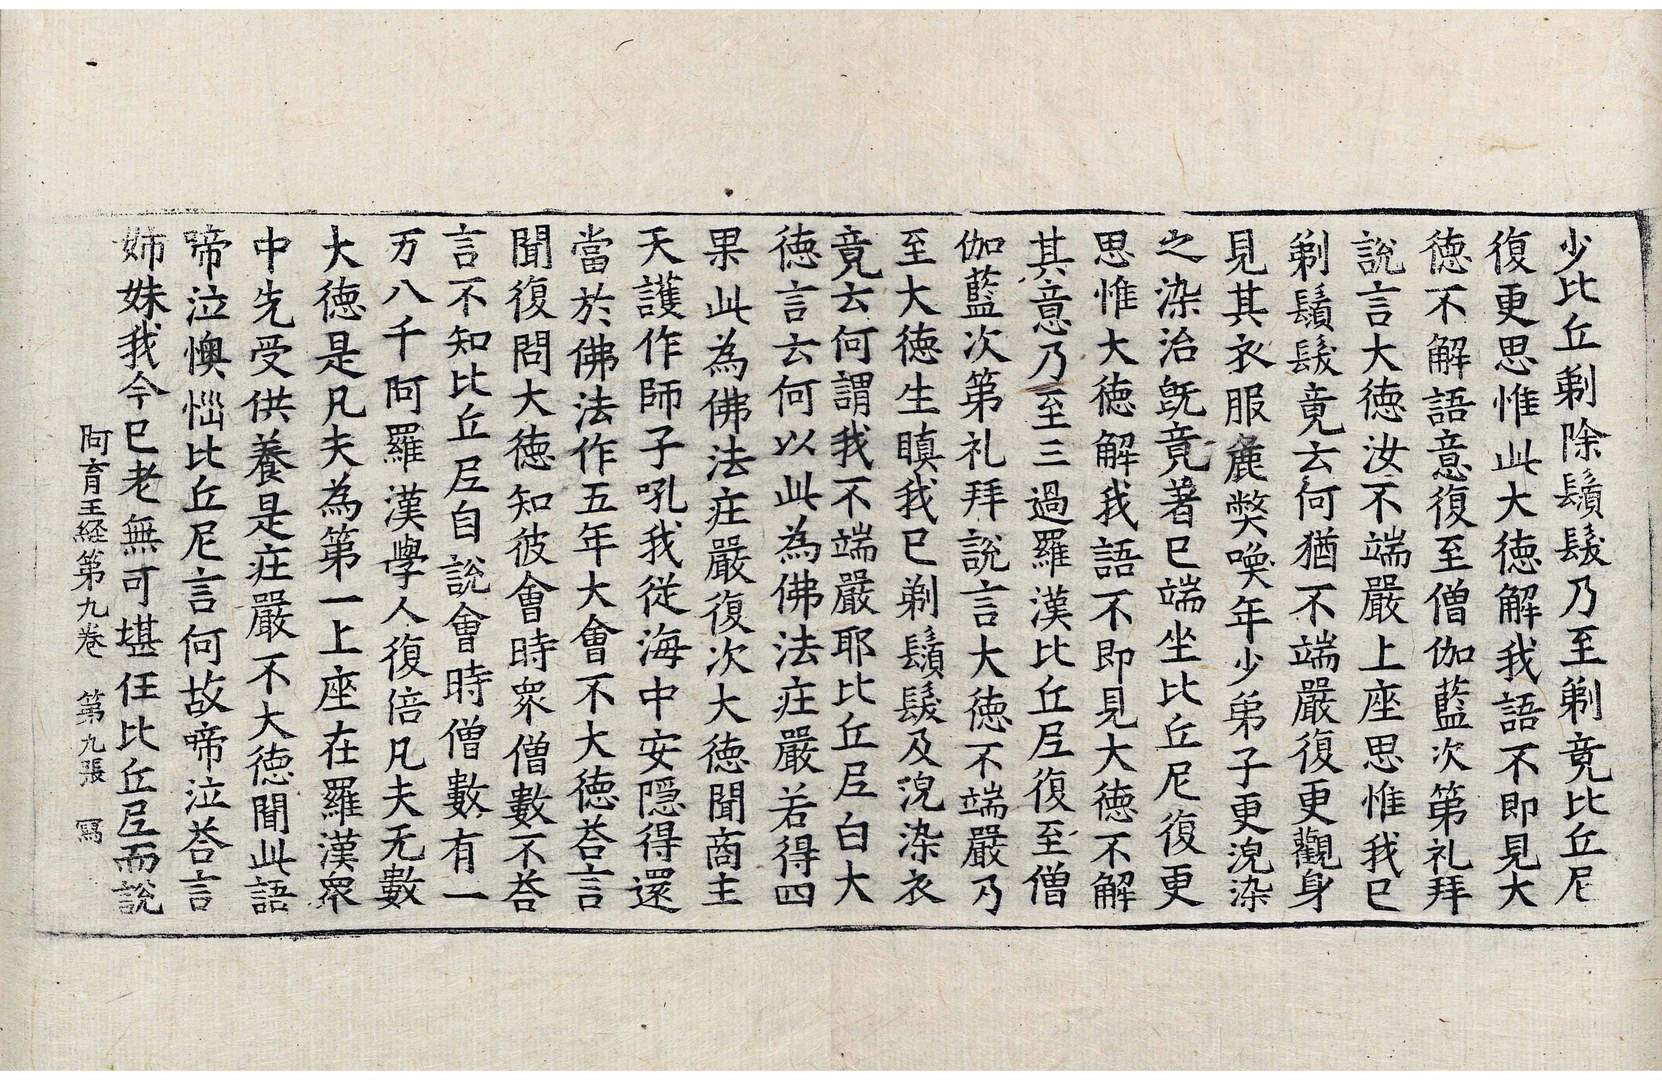 少比丘剃除鬚髮乃至剃竟比丘尼
復更思惟此大徳解我語不即見大
徳不解語意復至僧伽藍次第礼拜
說言大徳汝不端嚴上座思惟我已
剃鬚髮竟云何猶不端嚴復更觀身
見其衣服麁獘喚年少弟子更浣染
之染治既竟著已端坐比丘尼復更
思惟大徳解我語不即見大徳不解
其意乃至三過羅漢比丘尼復至僧
伽藍次第礼拜說言大徳不端嚴乃
至大徳生瞋我已剃鬚髮及浣染衣
竟云何謂我不端嚴耶比丘尼白大
徳言云何以此為佛法庄嚴若得四
果此為佛法庄嚴復次大徳聞商主
天護作師子吼我從海中安隱得還
當於佛法作五年大會不大徳荅言
聞復問大徳知彼會時衆僧數不荅
言不知比丘尼自說會時僧數有一
万八千阿羅漢學人復倍凡夫无數
大徳是凡夫為第一上座在羅漢衆
中先受供養是庄嚴不大徳聞此語
啼泣懊惱比丘尼言何故啼泣荅言
姉妹我今已老無可堪任比丘尼而說
阿育王経第九卷　第九張　寫